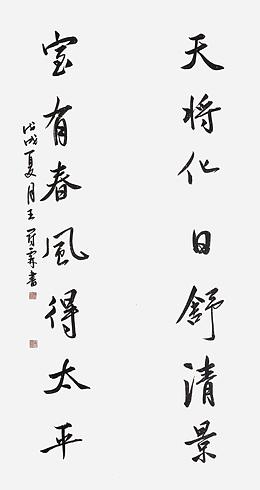 天将化日舒清景
室有春風得太平
戊戌夏月王冠霖書